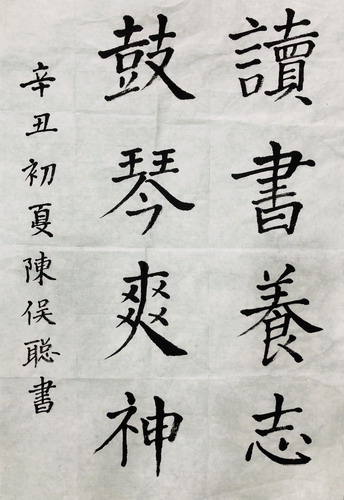 讀書養志
鼓琴爽神
辛丑初夏陳俣聡書